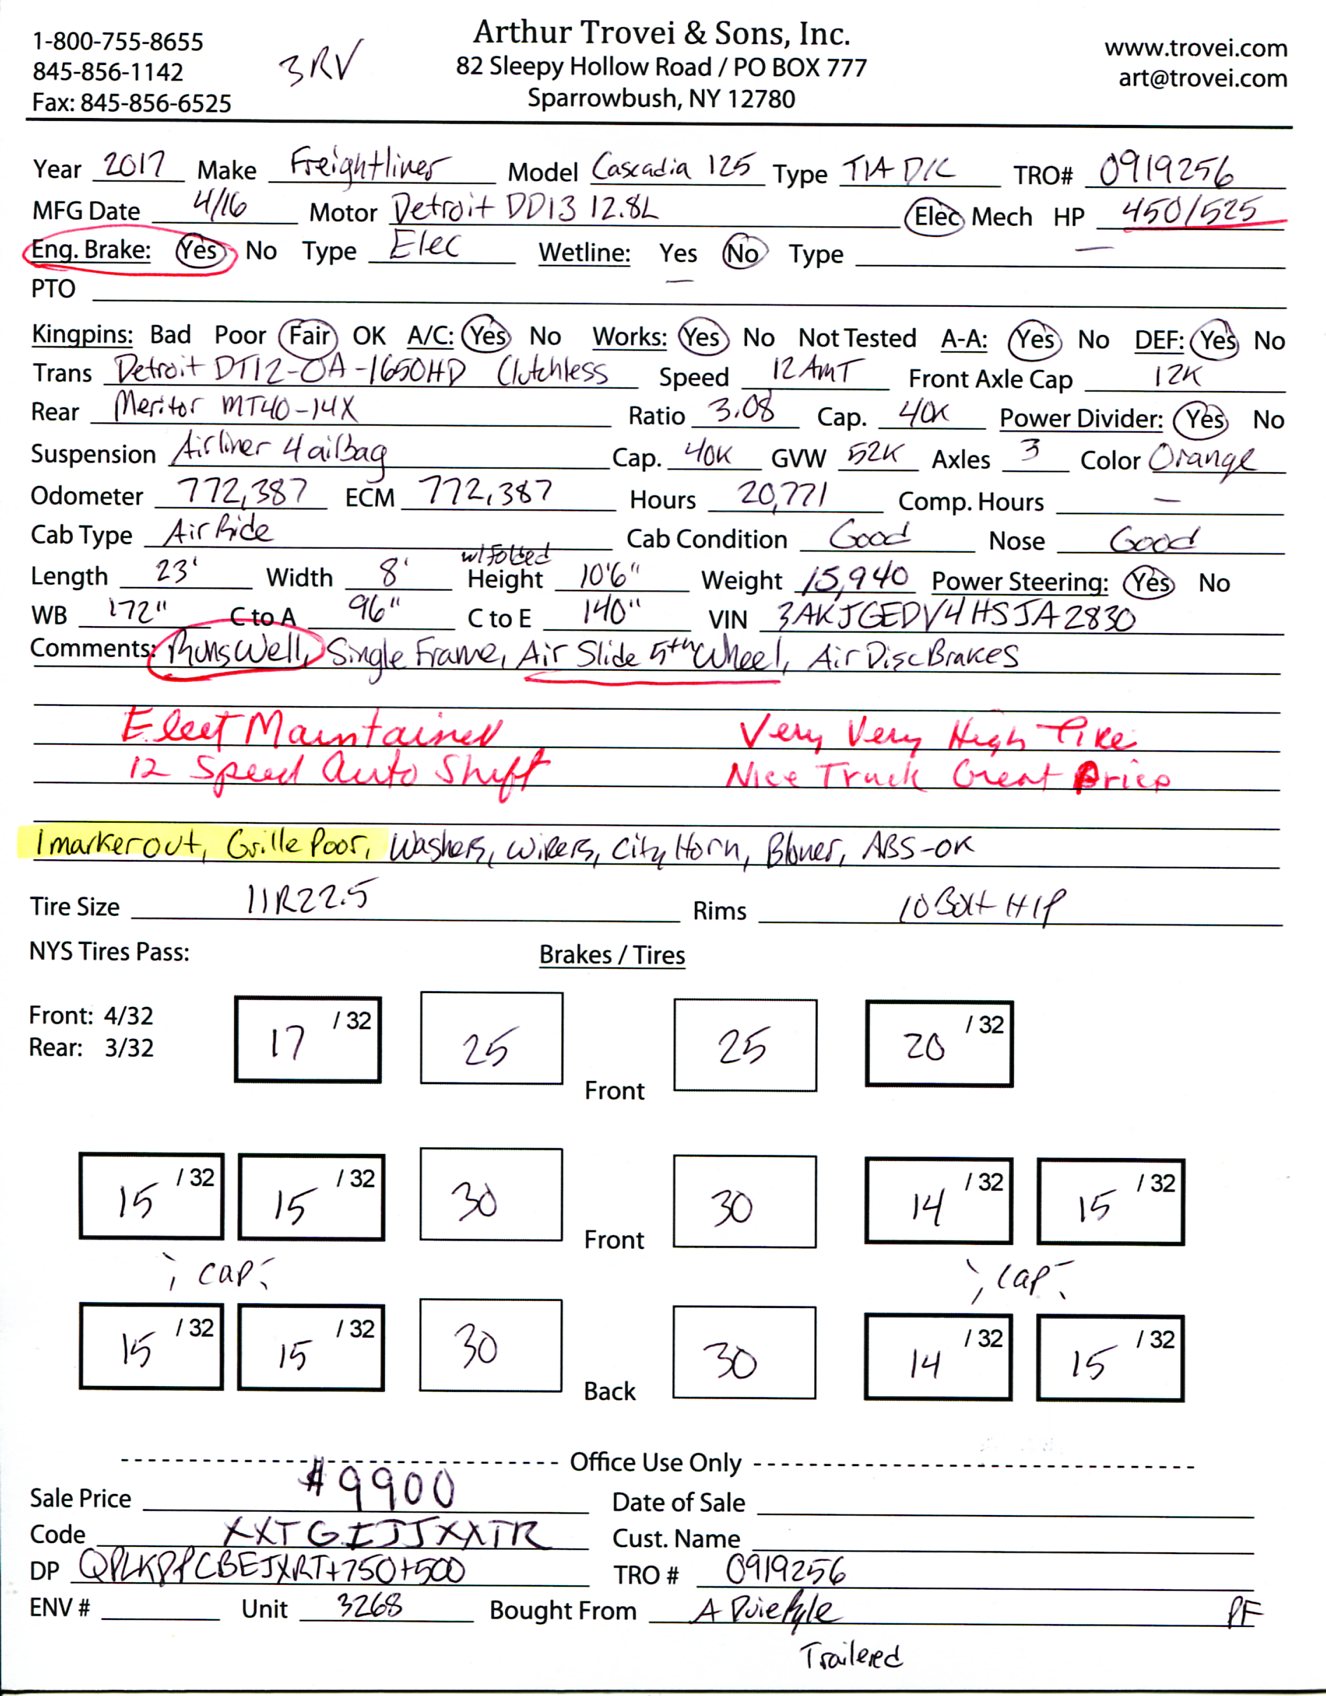 Arthur Trovei & Sons, Inc.
82 Sleepy Hollow Road / PO BOX 777
Sparrowbush, NY 12780
1-800-755-8655
845-856-1142
Fax: 845-856-6525
3RV
www.trovei.com
art@trovei.com
Year 2017 Make Freightliner Model Cascadia 125 Type T/A D/C TRO# 0919256
MFG Date 4/16 Motor Detroit DD13 12.8L Elec Mech HP 450/525
Eng. Brake: Yes No Type Elec Wetline: Yes No Type —
PTO —
Kingpins: Bad Poor Fair OK A/C: Yes No Works: Yes No Not Tested A-A: Yes No DEF: Yes No
Trans Detroit DT12-OA-1650HD Clutchless Speed 12 AMT Front Axle Cap 12K
Rear Meritor MT40-14X Ratio 3.08 Cap. 40K Power Divider: Yes No
Suspension Airliner 4 airbag Cap. 40K GVW 52K Axles 3 Color Orange
Odometer 772,387 ECM 772,387 Hours 20,771 Comp. Hours —
Cab Type Air Ride Cab Condition Good Nose Good
Length 23' Width 8' w/Folded Height 10'6" Weight 15,940 Power Steering: Yes No
WB 172" C to A 96" C to E 140" VIN 3AKJGEDV4HSJA2830
Comments: Runs Well, Single Frame, Air Slide 5th Wheel, Air Disc Brakes
Fleet Maintained Very Very High Tire
12 Speed Auto Shift Nice Truck Great Price
1 marker out, Grille Poor, Washers, Wipers, City Horn, Blower, ABS-OK
Tire Size 11R22.5 Rims 10 Bolt H/P
NYS Tires Pass: Brakes / Tires
Front: 4/32
Rear: 3/32
17 /32 25 Front 25 20 /32
15 /32 15 /32 30 Front 30 14 /32 15 /32
cap cap
15 /32 15 /32 30 Back 30 14 /32 15 /32
Office Use Only
Sale Price $9900 Date of Sale
Code XXTGIJJXXTR Cust. Name
DP +750+500 TRO # 0919256
ENV # Unit 3268 Bought From A PF
Trailered